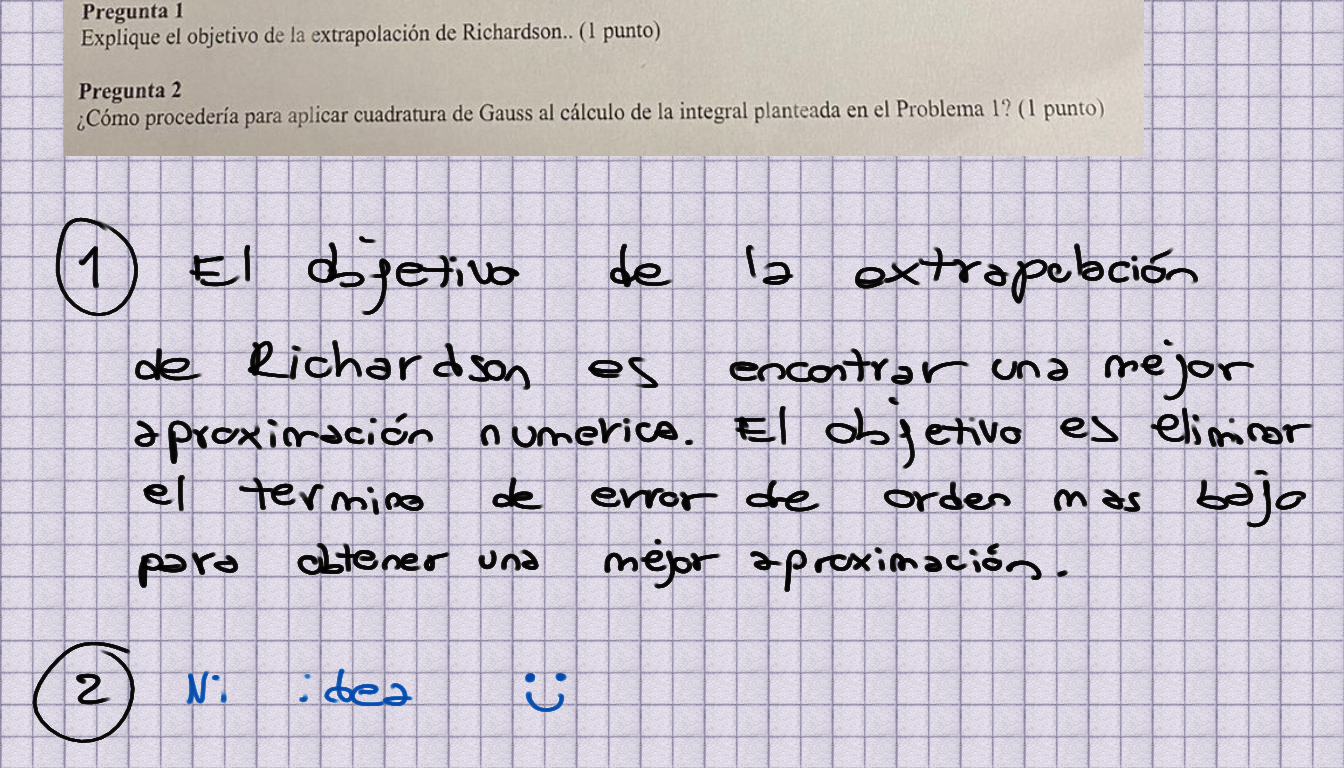 Pregunta 1
Explique el objetivo de la extrapolación de Richardson.. (1 punto)
Pregunta 2
¿Cómo procedería para aplicar cuadratura de Gauss al cálculo de la integral planteada en el Problema 1? (1 punto)
1 El objetivo de la extrapolación
de Richardson es encontrar una mejor
aproximación numerica. El objetivo es eliminar
el termino de error de orden mas bajo
para obtener una mejor aproximación.
2 Ni idea